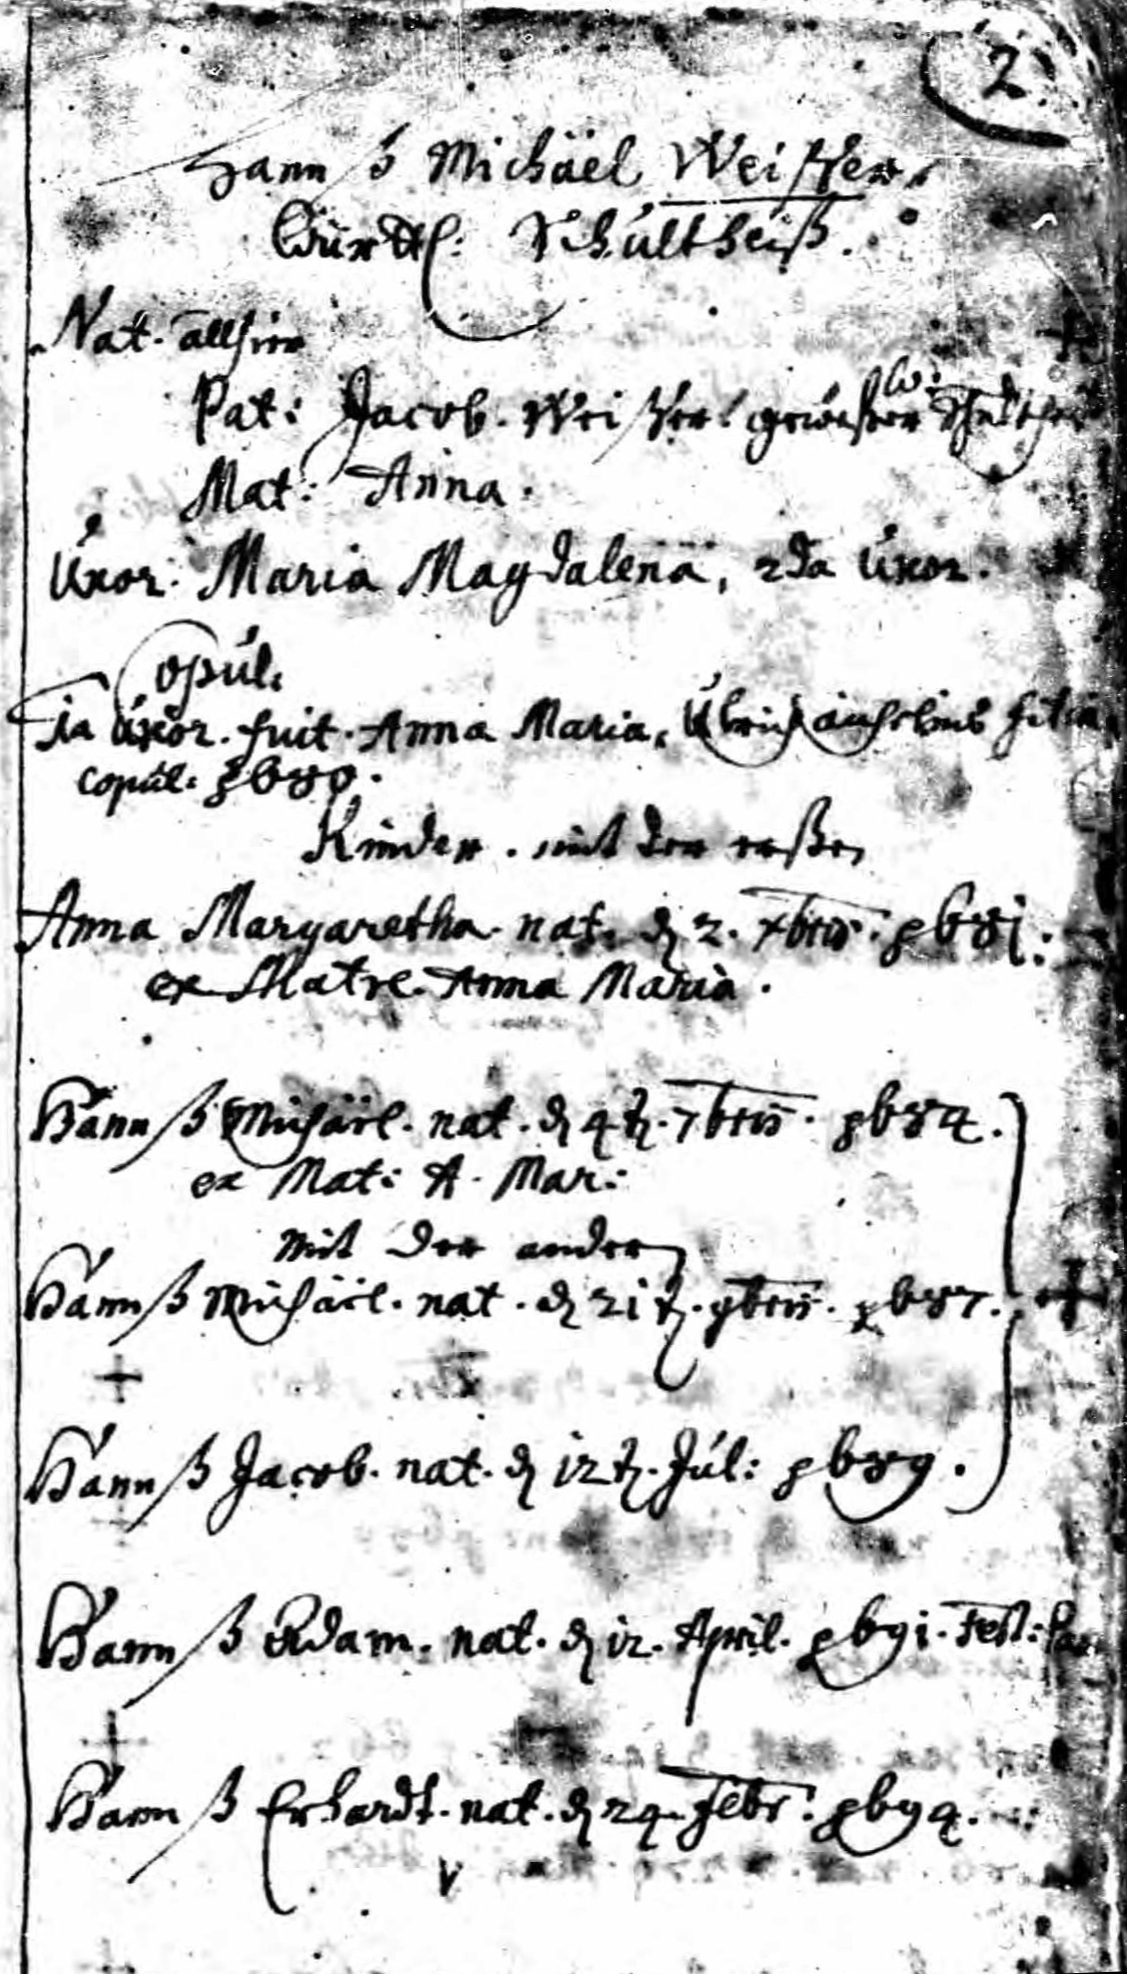 2.
Hannß Michäel Weisser.
Würtl: Schultheiß.
Nat. allhier
Pat: Jacob. Weisser. gewesster w: Schultheiß
Mat: Anna.
Uxor. Maria Magdalena, 2da Uxor.
Copul.
1a Uxor. fuit. Anna Maria, Ulrich filia,
copul. 1680.
Kinder. mit der ersten
Anna Margaretha. nat. d 2. Xbris. 1681.
ex Matre Anna Maria.
Hannß Michäel. nat. d 4t. 7bris. 1684.
ex Mat: A. Mar:
mit der andern
Hannß Michäel. nat. d 21t. 9bris. 1687.
Hannß Jacob. nat. d 12t. Jul: 1689.
Hannß Adam. nat. d 12. April. 1691. Fest: Pas
Hannß Erhardt. nat. d 24. Febr: 1694.